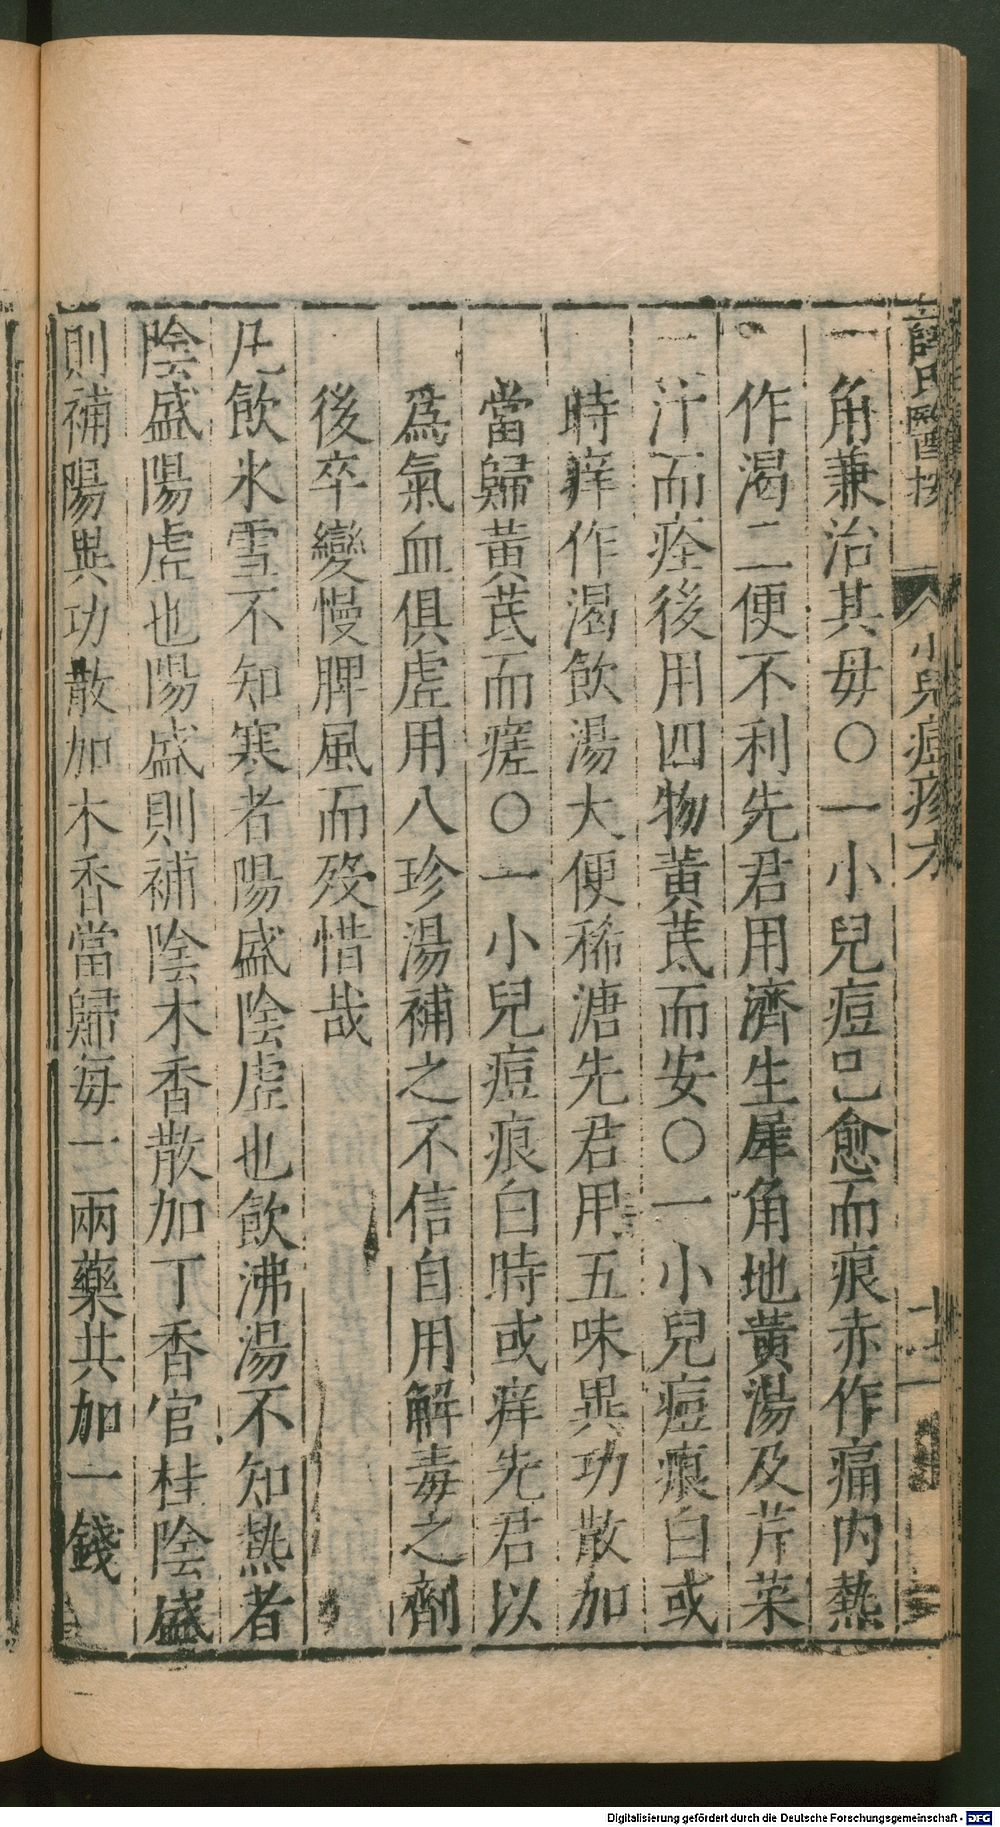 薛氏醫按 小兒痘疹方
角兼治其母〇一小兒痘已愈而痕赤作痛內熱
作渴二便不利先君用濟生犀角地黃湯及芹菜
汁而痊後用四物黃芪而安〇一小兒痘痕白或
時痒作渴飲湯大便稀溏先君用五味異功散加
當歸黃芪而瘥〇一小兒痘痕白時或痒先君以
爲氣血俱虛用八珍湯補之不信自用解毒之劑
後卒變慢脾風而歿惜哉
凡飲氷雪不知寒者陽盛陰虛也飲沸湯不知熱者
陰盛陽虛也陽盛則補陰木香散加丁香官桂陰盛
則補陽異功散加木香當歸每一兩藥共加一錢
Digitalisierung gefördert durch die Deutsche Forschungsgemeinschaft - DFG